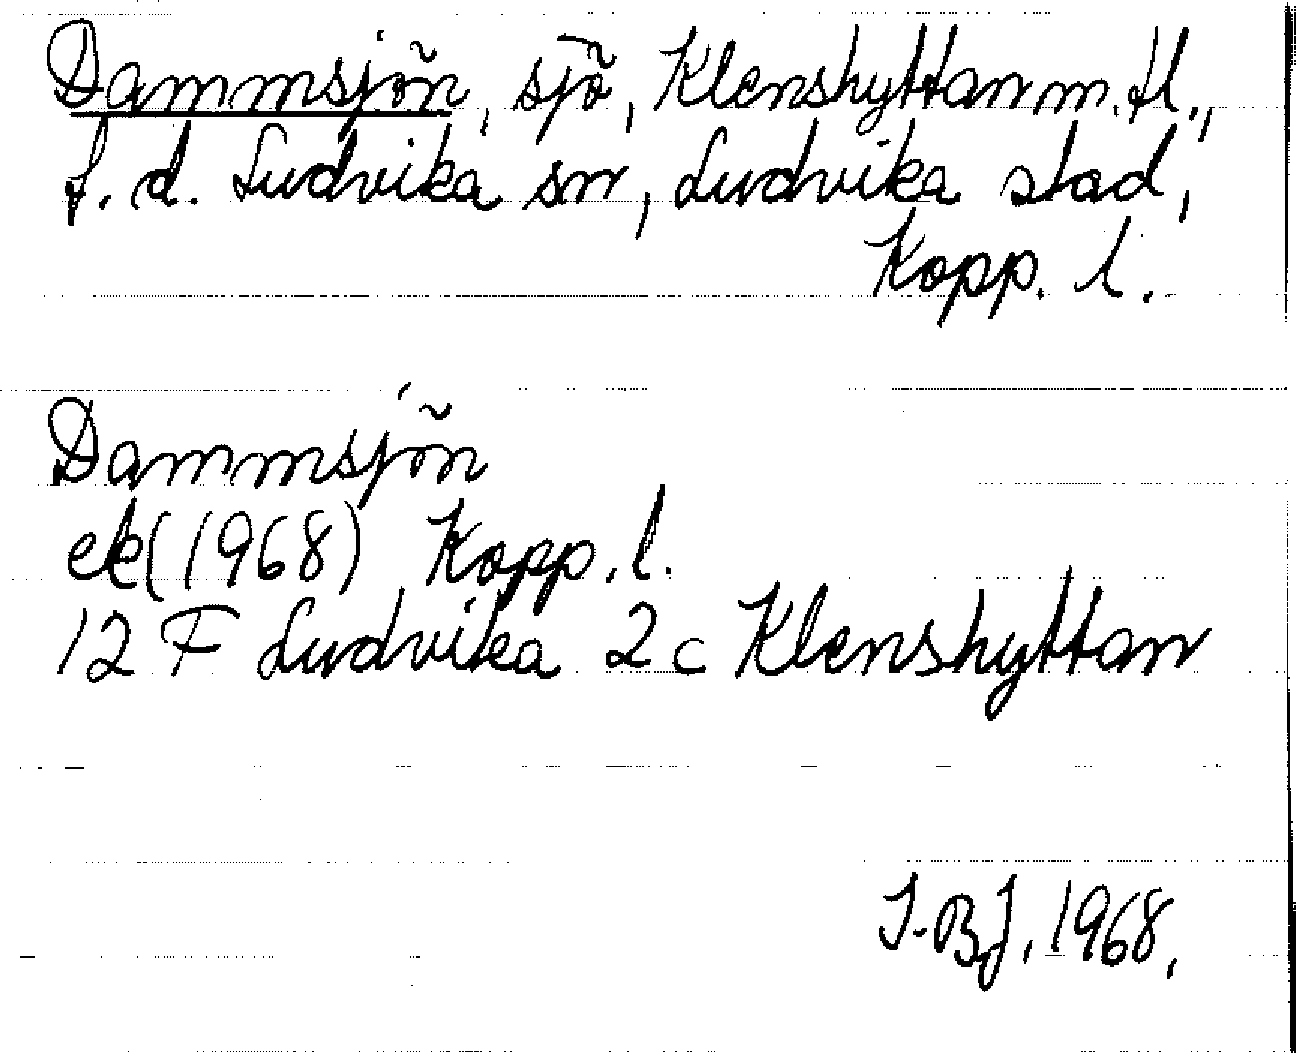 Dammsjön, sjö, Klenshyttan m.fl.,
f.d. Ludvika sn, Ludvika stad,
Kopp. l.
Dammsjön
ek(1968) Kopp. l.
12 F Ludvika 2c Klenshyttan
I-BJ, 1968,